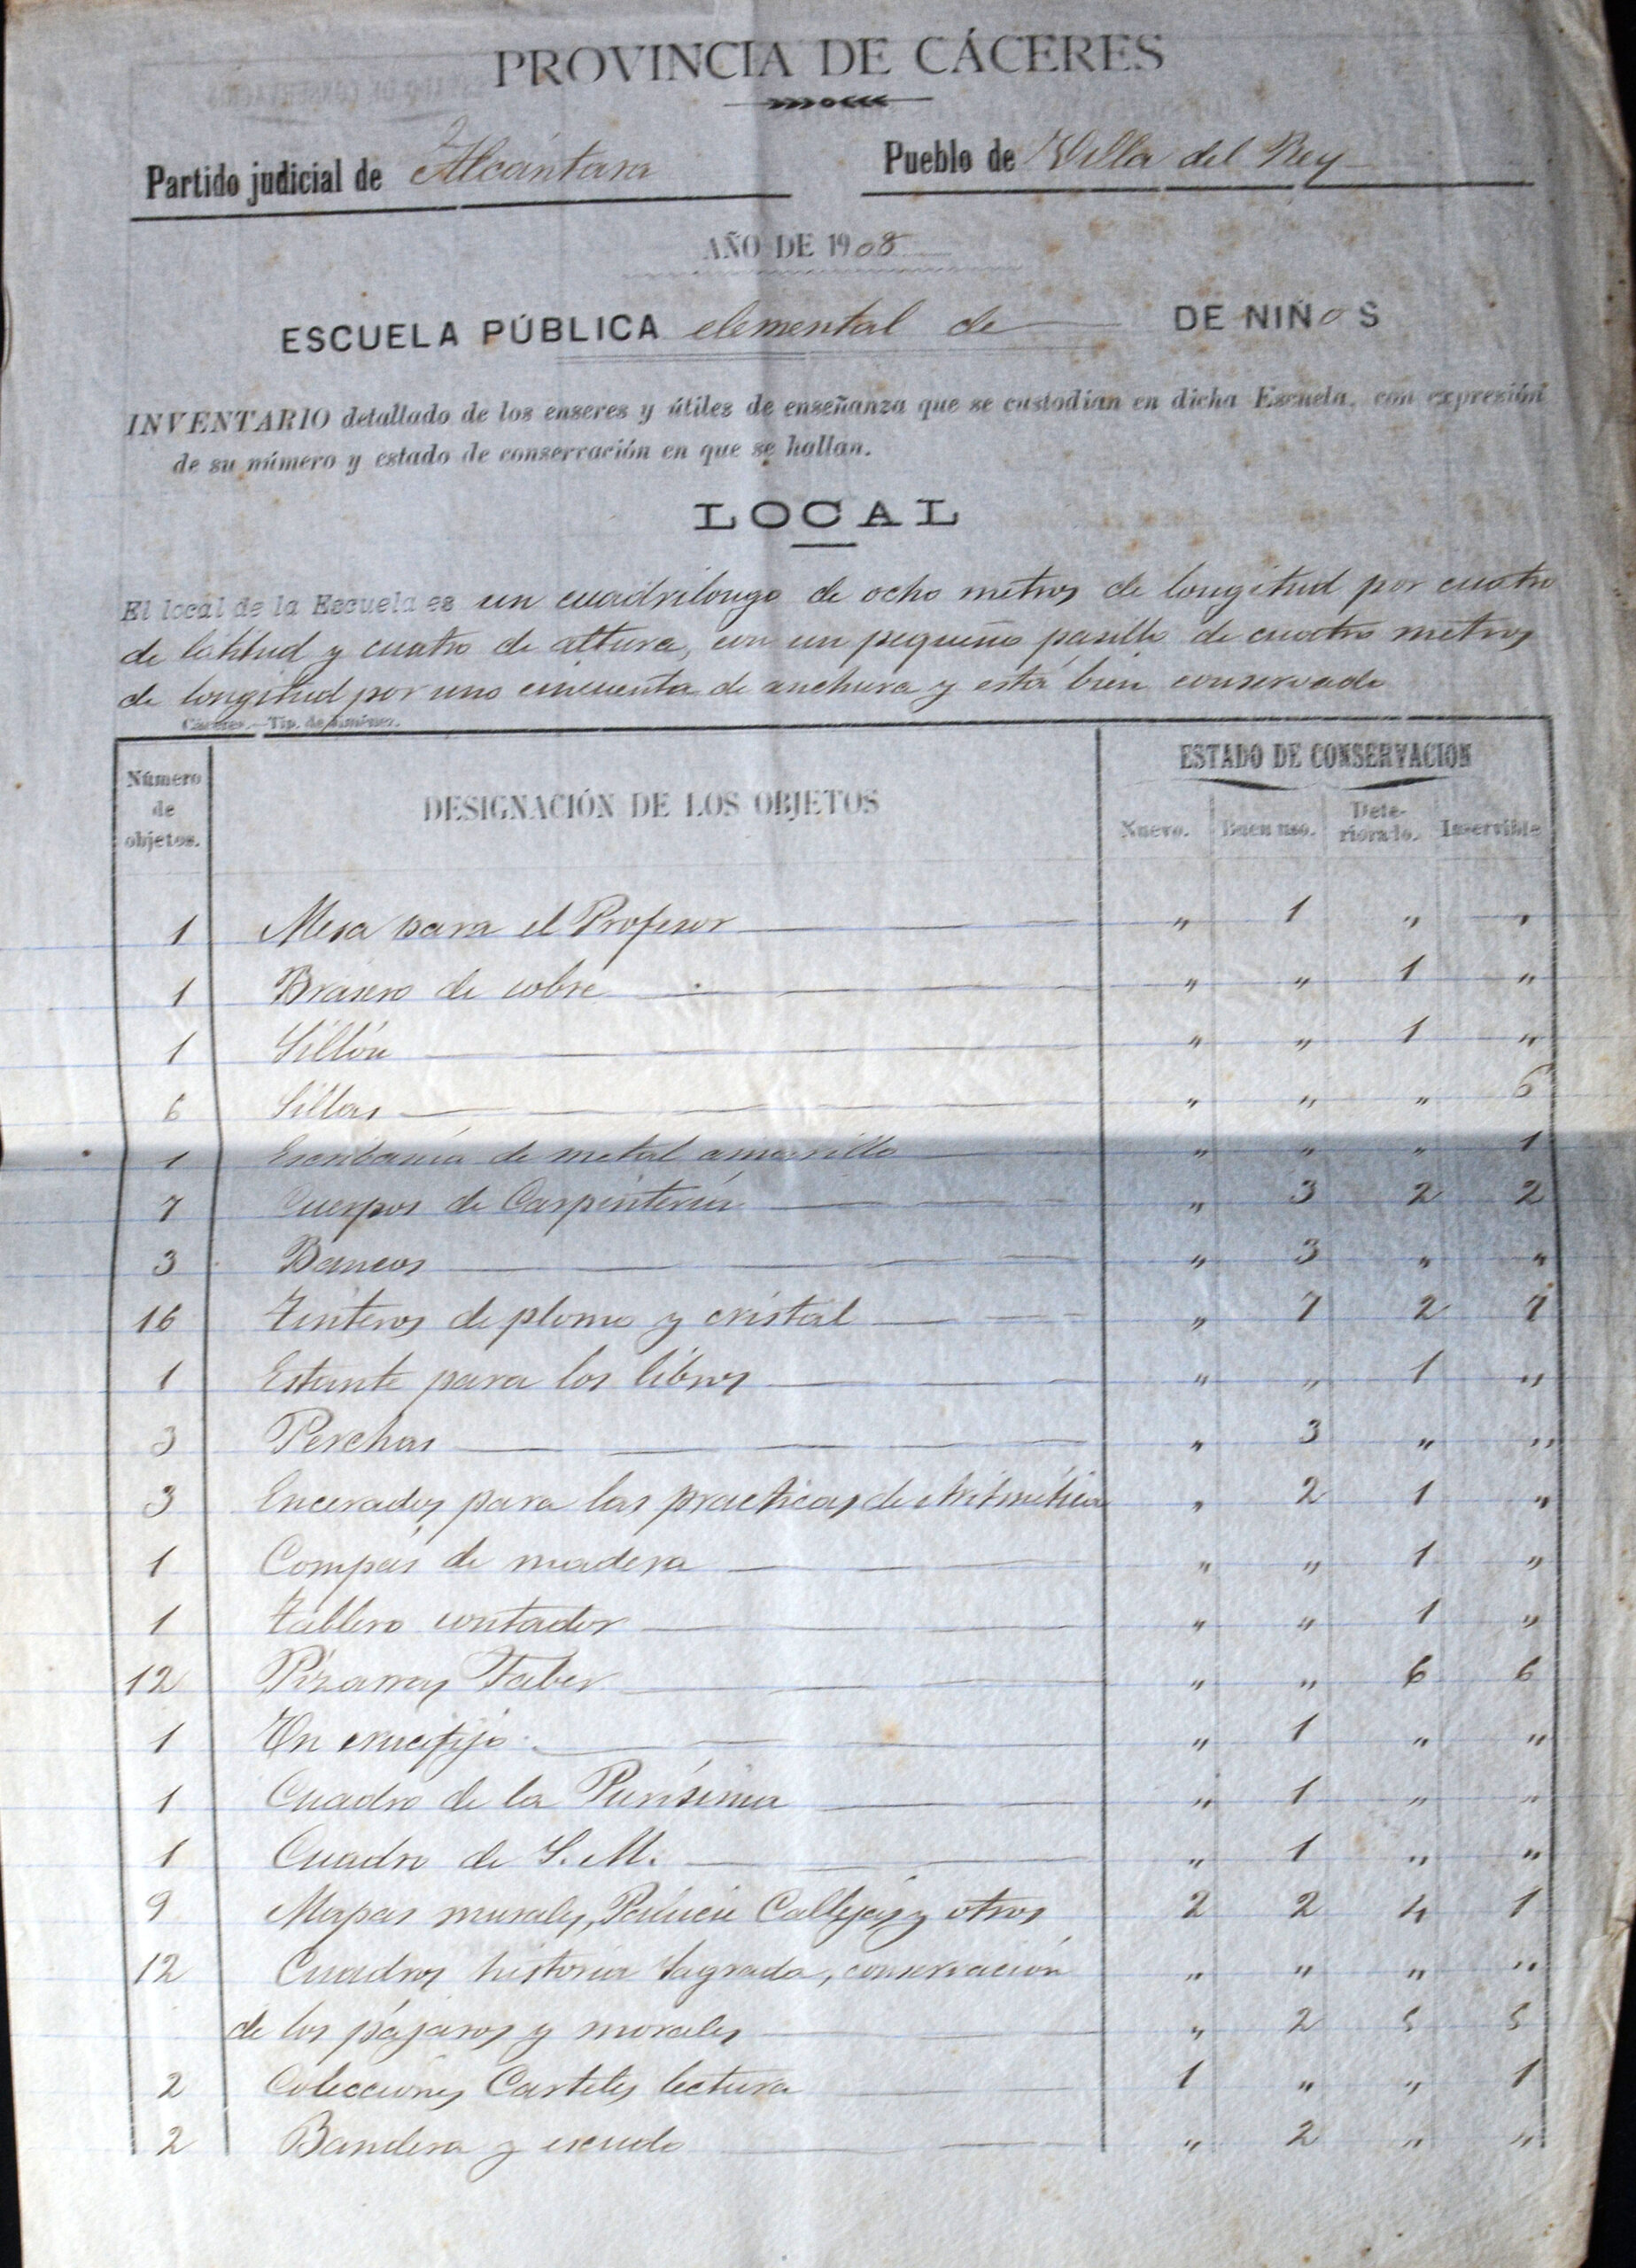 PROVINCIA DE CÁCERES
Partido judicial de Alcántara
Pueblo de Villa del Rey
AÑO DE 1908
ESCUELA PÚBLICA elemental de DE NIÑOS
INVENTARIO detallado de los enseres y útiles de enseñanza que se custodian en dicha Escuela, con expresión
de su número y estado de conservación en que se hallan.
LOCAL
El local de la Escuela es un cuadrilongo de ocho metros de longitud por cuatro
de latitud y cuatro de altura, con un pequeño pasillo de cuatro metros
de longitud por uno cincuenta de anchura y está bien conservado
Cáceres.—Tip. de Jiménez.
Número de objetos. DESIGNACIÓN DE LOS OBJETOS ESTADO DE CONSERVACION
Nuevo. Buen uso. Deteriorado. Inservible
1 Mesa para el Profesor " 1 " "
1 Brasero de cobre " " 1 "
1 Sillón " " 1 "
6 Sillas " " " 6
1 Escribanía de metal amarillo " " " 1
7 Cuerpos de Carpintería " 3 2 2
3 Bancos " 3 " "
16 Tinteros de plomo y cristal " 7 2 7
1 Estante para los libros " " 1 "
3 Perchas " 3 " "
3 Encerados para las practicas de Aritmética " 2 1 "
1 Compás de madera " " 1 "
1 Tablero contador " " 1 "
12 Pizarras Faber " " 6 6
1 Un crucifijo " 1 " "
1 Cuadro de la Purísima " 1 " "
1 Cuadro de S. M. " 1 " "
9 Mapas murales, Calleja y otros 2 2 4 1
12 Cuadros historia Sagrada, conservación " " " "
de los pájaros y morales " 2 5 5
2 Colecciones Carteles lectura 1 " " 1
2 Bandera y escudo " 2 " "